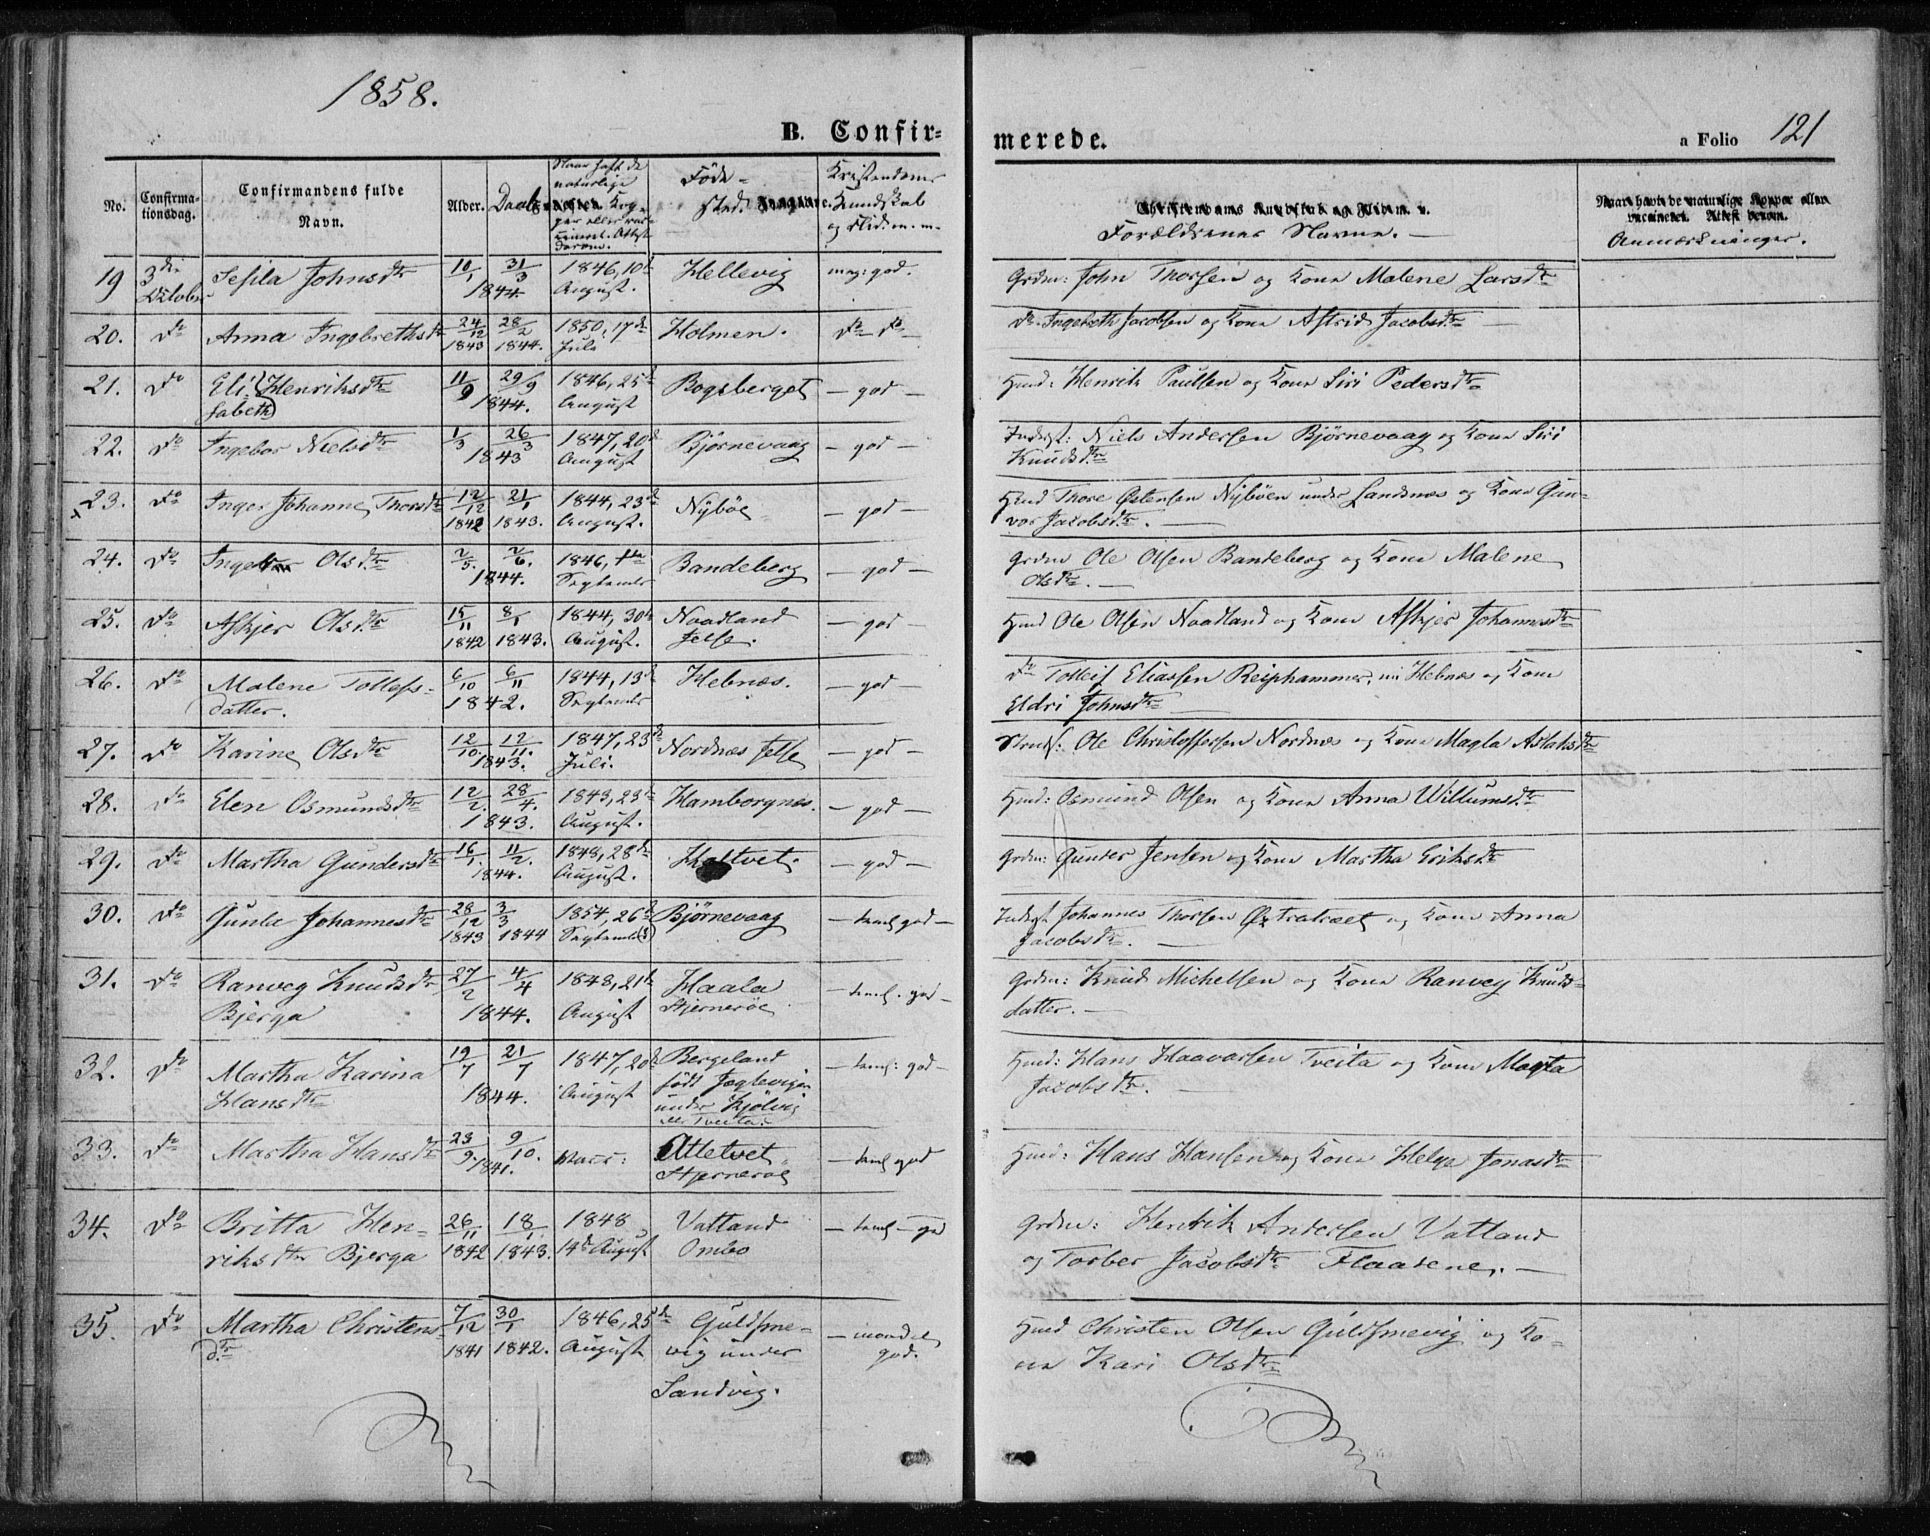 1858.
B. Confir-
merede.
a Folio 121
No.
Confirma-
tionsdag.
Confirmandens fulde
Navn.
Alder.
Daab
Føde-
sted.
Kristendoms
Kundskab
og Flid m. m.
Forældrenes Navne. —
Anmærkninger.
19 3die October Sesila Johnsdtr 10/1 31/3 1844 1846, 10de August. Hellevig meg: god. Grdm: John Thorsen og Kone Malene Larsdtr
20. do Anna Ingebrethsdtr 24/12 1843 28/2 1844. 1850, 17de Juli Holmen. do do do Ingebreth Jacobsen og Kone Astrid Jacobsdtr —
21. do Elisabeth Henriksdtr 11/9 29/9 1844. 1846, 25de August Bogsberget — god — Hmd: Henrik Paulsen og Kone Siri Pedersdtr
22. do Ingebor Nielsdtr 1/3 26/3 1843 1847, 20de August Bjørnevaag — god — Inderst: Niels Andersen Bjørnevaag og Kone Siri
Knudsdtr
23. do Inger Johanne Thorsdtr 12/12 1842 21/1 1843. 1844, 23de August. Nÿbøe — god — Hmd Thore Østensen Nÿbøen under Landsnæs og Kone Gun-
vor Jacobsdtr. —
24. do Olsdtr 2/5. 2/6. 1844. 1846, September Bandeberg — god — Grdm Ole Olsen Bandeberg og Kone Malene
Olsdtr. —
25. do Askjer Olsdtr 15/11 1842 8/1 1843. 1844, 30de August. Naadland Jelse. — god — Hmd Ole Olsen Naadland og Kone Askjer Johannesdtr
26. do Malene Tollefs-
datter. 6/10 6/11 1842. 1844, 13de September Hebnæs. — god — do Tolleif Eliassen Reiphammer, nu Hebnæs og Kone
Eldri Johnsdtr
27. do Karine Olsdtr 12/10. 12/11. 1843. 1847, 23de Juli. Nordnæs Jelse — god — Ole Christoffersen Nordnæs og Kone Magla Aslaksdtr
28. do Elen Osmundsdtr 12/2. 28/4. 1843. 1843, 23de August. Hamborgnæs. — god — Hmd: Osmund Olsen og Kone Anna Willumsdtr
29. do Martha Gundersdtr 16/1. 11/2. 1844. 1848, 28de August. — god — Grdm: Gunder Jensen og Kone Martha Eriksdtr
30. do Gunla Johannesdtr 28/12 1843 3/3 1844 1854, 26de September Bjørnevaag — teml god — Inderst Johannes Thorsen og Kone Anna
Jacobsdtr. —
31. do Ranveg Knudsdtr
Bjerga 27/2 4/4 1844. 1848, 21de August Haala
Stjernerøe — teml. god — Grdm: Knud Michelsen og Kone Ranveg Knuds-
datter. —
32. do Martha Karina
Hansdtr 19/7 21/7 1844. 1847, 20de August Bergeland
født Joglevigen
under Kjølvig
Tveita. — teml: god — Hmd: Hans Haavarsen Tveita og Kone Magla
Jacobsdtr. —
33. do Martha Hansdtr 23/9. 9/10. 1841. Attetvet
Stjernerøe — teml god Hmd: Hans Hansen og Kone Helge Jonasdtr
34. do Britta Hen-
riksdtr Bjerga 26/11 1842 18/1 1843. 1848 14de August Vatland
Ombo — teml — god Grdm: Henrik Andersen Vatland
og Torber Jacobsdtr Flaatene. —
35. do Martha Christens-
dtr. 7/12 1841 30/1 1842. 1846, 25de August Guldsme-
vig under
Sandvig. — maadel
god. Hmd Christen Olsen Guldsmevig og Ko-
ne Kari Olsdtr